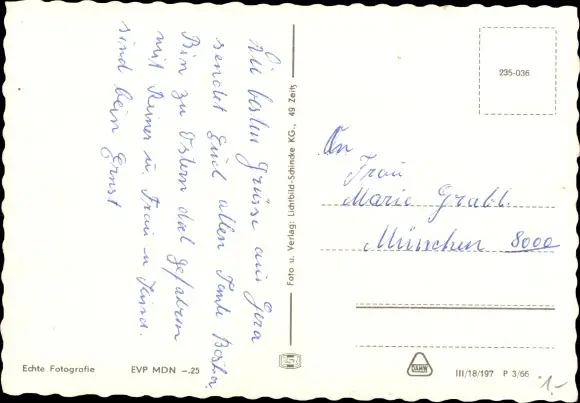 Die besten Grüsse aus Gera
sendet Euch allen Tante Bertha.
Bin zu Ostern dal gefahren
mit Reiner u. Frau u. Kind.
sind beim Ernst
Foto u. Verlag: Lichtbild-Schincke KG., 49 Zeitz
235-036
An
Frau
Marie Grabl.
München 8000
Echte Fotografie
EVP MDN -.25
DAMW
III/18/197 P 3/66
1,-